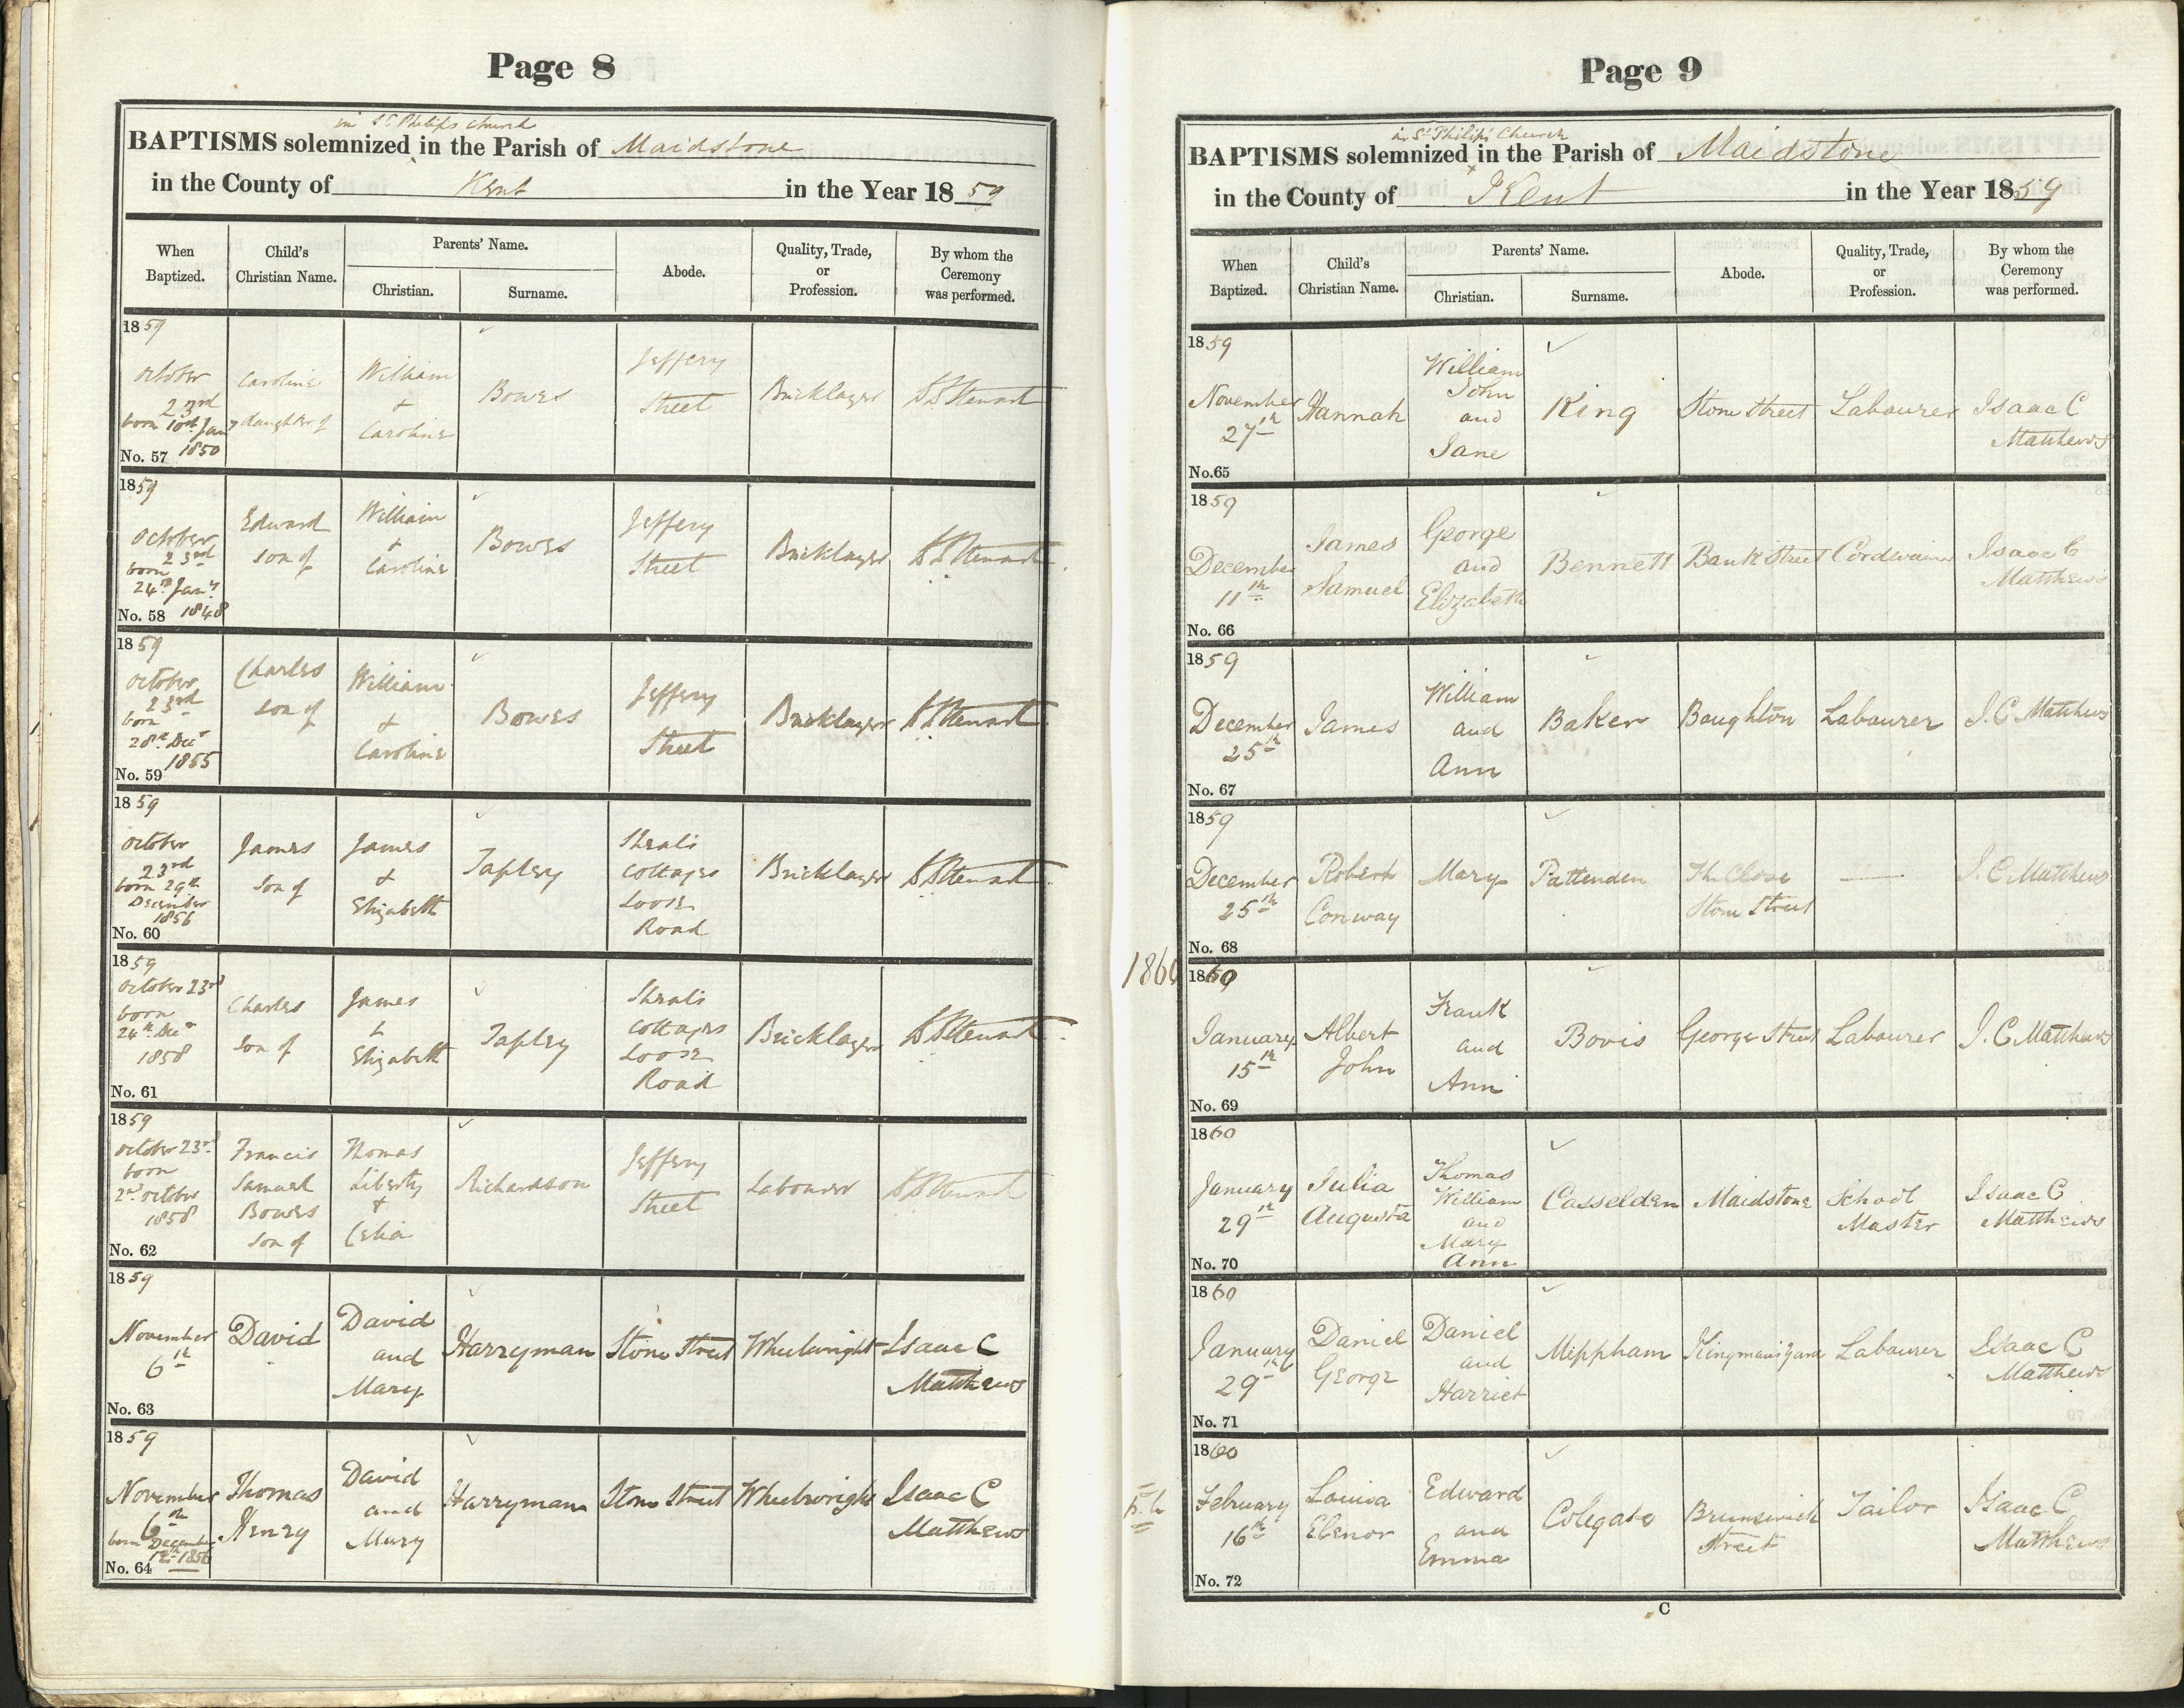 Page 8
in St. Philips Church
BAPTISMS solemnized in the Parish of Maidstone
in the County of Kent in the Year 1859
When Baptized.
Child's Christian Name.
Parents' Name.
Christian.
Surname.
Abode.
Quality, Trade, or Profession.
By whom the Ceremony was performed.
1859
October
23rd
born 10th Jany
1850
No. 57
Caroline
daughter of
William
+
Caroline
Bowes
Jeffery
Street
Bricklayer
Stewart
1859
October
23rd
born
24th Jany
1848
No. 58
Edward
son of
William
+
Caroline
Bowes
Jeffery
Street
Bricklayer
Stewart
1859
October
23rd
born
28th Decr
1855
No. 59
Charles
son of
William
+
Caroline
Bowes
Jeffery
Street
Bricklayer
Stewart
1859
October
23rd
born 29th
December
1856
No. 60
James
son of
James
+
Elizabeth
Tapley
Cottages
Loose
Road
Bricklayer
Stewart
1859
October 23rd
born
24th Decr
1858
No. 61
Charles
son of
James
+
Elizabeth
Tapley
Cottages
Loose
Road
Bricklayer
Stewart
1859
October 23rd
born
2nd October
1858
No. 62
Francis
Samuel
Bowes
son of
Thomas
Liberty
+
Celia
Richardson
Jeffery
Street
Labourer
Stewart
1859
November
6th
No. 63
David
David
and
Mary
Harryman
Stone Street
Wheelwright
Isaac C
Matthews
1859
November
6th
born December
12th 1856
No. 64
Thomas
Henry
David
and
Mary
Harryman
Stone Street
Wheelwright
Isaac C
Matthews
Page 9
in St. Philip's Church
BAPTISMS solemnized in the Parish of Maidstone
in the County of Kent in the Year 1859
When Baptized.
Child's Christian Name.
Parents' Name.
Christian.
Surname.
Abode.
Quality, Trade, or Profession.
By whom the Ceremony was performed.
1859
November
27th
No. 65
Hannah
William
John
and
Jane
King
Stone Street
Labourer
Isaac C
Matthews
1859
December
11th
No. 66
James
Samuel
George
and
Elizabeth
Bennett
Bank Street
Cordwainer
Isaac C
Matthews
1859
December
25th
No. 67
James
William
and
Ann
Baker
Boughton
Labourer
I. C Matthews
1859
December
25th
No. 68
Robert
Conway
Mary
Pattenden
The Close
Stone Street
I. C Matthews
1860
1860
January
15th
No. 69
Albert
John
Frank
and
Ann
Bovis
George Street
Labourer
I. C Matthews
1860
January
29th
No. 70
Julia
Augusta
Thomas
William
and
Mary
Ann
Casselden
Maidstone
School
Master
Isaac C
Matthews
1860
January
29th
No. 71
Daniel
George
Daniel
and
Harriet
Meppham
Kingman's Yard
Labourer
Isaac C
Matthews
1860
February
16th
No. 72
Louisa
Ebenor
Edward
and
Emma
Colegate
Brunswick
Street
Tailor
Isaac C
Matthews
C